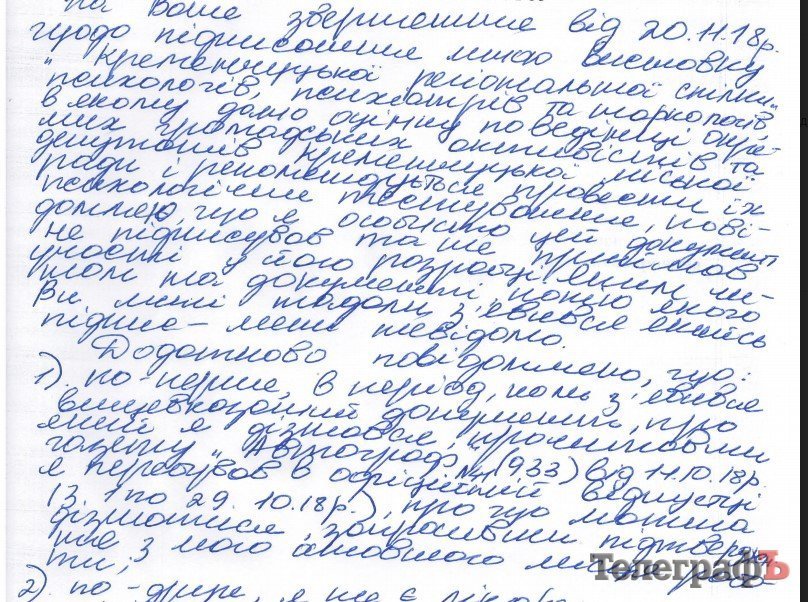 на Ваше звернення від 20.11.18р.
щодо підписання мною висновку
"Кременчуцької регіональної спілки
психологів, психіатрів та наркологів",
в якому дано оцінку поведінці окре-
мих громадських активістів та
депутатів Кременчуцької міської
ради і рекомендується провести їх
психологічне тестування, пові-
домляю, що я особисто цей документ
не підписував та не приймав
участі у його розробці. Яким чи-
ном на документі, копію якого
Ви мені надали, з'явився якийсь
підпис – мені невідомо.
Додатково повідомляю, що:
1). по-перше, в період, коли з'явився
вищевказаний документ, про
який я дізнався, прочитавши
газету "Автограф" (933) від 11.10.18р.
я перебував в офіційній відпустці
(з 1 по 29.10.18р.), про що можна
дізнатися, запросивши підтвердження
з мого основного місця робо-
ти;
2) по-друге, я не є
Телеграфъ